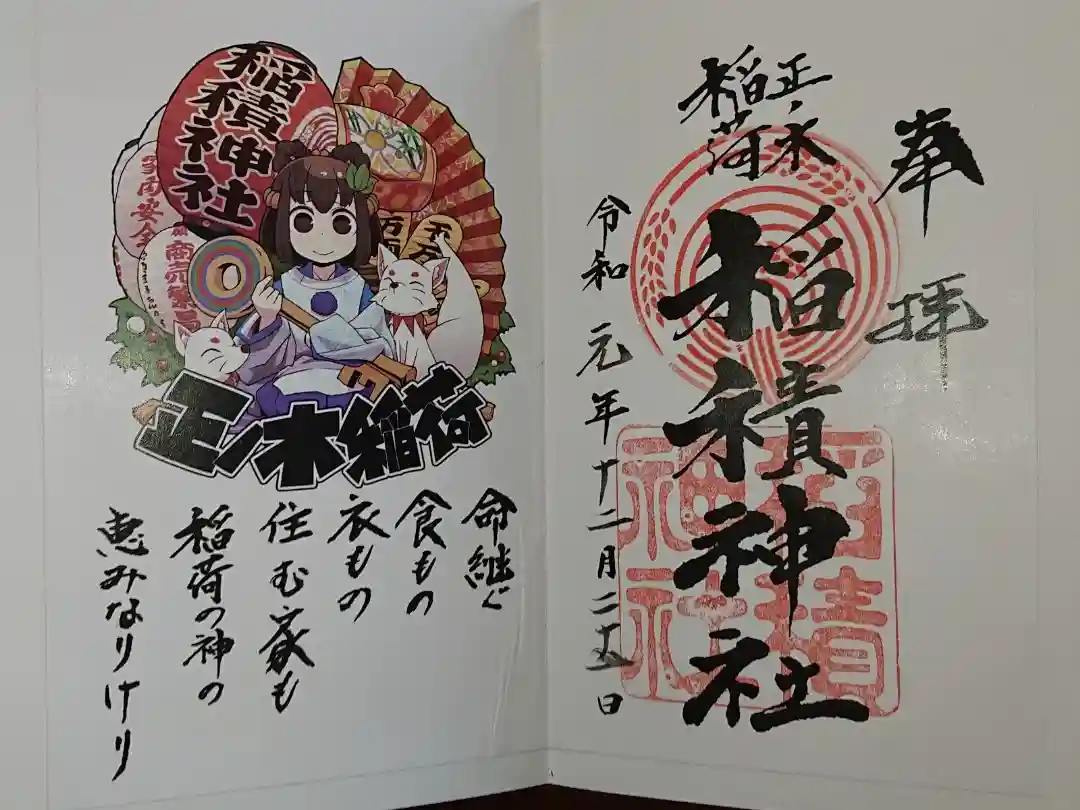 奉拝
正ノ木
稲荷
稲積神社
令和元年十二月二十五日
稲積神社
稲積神社
家内安全
商売繁昌
万両
千万
正ノ木稲荷
命継ぐ
食もの
衣もの
住む家も
稲荷の神の
恵みなりけり